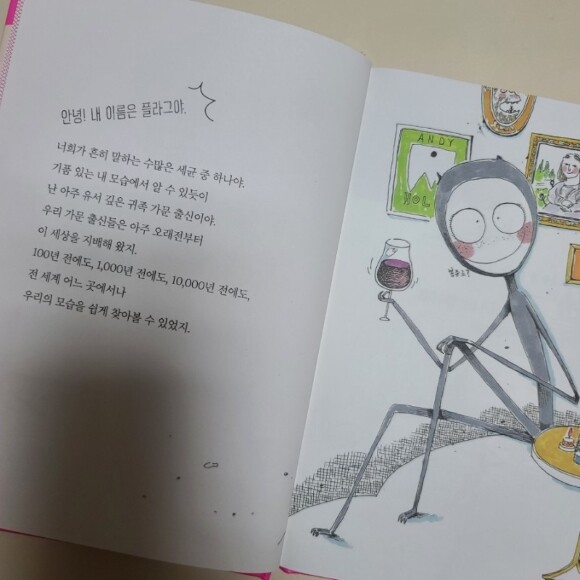 안녕! 내 이름은 플라그야.
너희가 흔히 말하는 수많은 세균 중 하나야.
기품 있는 내 모습에서 알 수 있듯이
난 아주 유서 깊은 귀족 가문 출신이야.
우리 가문 출신들은 아주 오래전부터
이 세상을 지배해 왔지.
100년 전에도, 1,000년 전에도, 10,000년 전에도,
전 세계 어느 곳에서나
우리의 모습을 쉽게 찾아볼 수 있었지.
ANDY